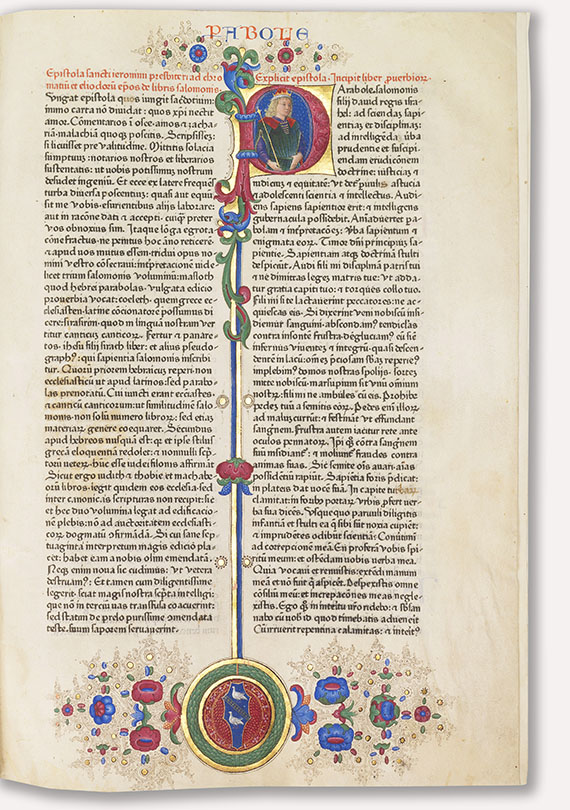 PABOLE
Epistola sancti ieronimi presbiteri ad chro
matiũ et eliodorũ epos de libris salomonis
Iungat epistola quos iungit sacerdotium:
immo carta nõ diuidat: quos xpi nectit
amor. Cõmentarios ĩ osee. amos ⁊ zacha-
riã malachiã quoqz poscitis. Scripsissez:
si licuisset pre valitudine. Mittitis solacia
sumptuuz: notarios nostros et librarios
sustentatis: ut uobis potissimuz nostrum
desudet ingeniũ. Et ecce ex latere frequẽs
turba diuersa poscentium: quasi aut equũ
sit me vobis esurientibus alijs laborare:
aut in racõne dati ⁊ accepti. cuiqz preter
vos obnoxius sim. Itaqz lõga egrotati
cõne fractus. ne penitus hoc ãno reticerẽ.
⁊ apud uos mutus essem. tridui opus no-
mini vestro cõsecraui: ĩnterpretacionẽ uide
licet trium salomonis voluminũ: masloth
quod hebrei parabolas. vulgata edicio
prouerbia vocat: coeleth. quem grece ec-
clesiasten. latine cõcionatorẽ possumus di-
cere: sirasirim. quod in lingua nostram ver
titur canticuz canticorz. Fertur ⁊ panare-
tos. ihesu filij sirach liber: et alius pseudo-
graphz: qui sapientia salomonis inscribi
tur. Quorũ priorem hebraicuz reperi. non
ecclesiasticũ ut apud latinos: sed parabo-
las prenotatũ. Cui iuncti erant eccliastes.
⁊ canticũ canticorum: ut similitudinẽ salo-
monis. non solũ numero librorz: sed etiaz
materiarz genere coequaret. Secundus
apud hebreos nusquã est: qz et ipse stilus
grecã eloquentiã redolet: ⁊ nonnulli scp̃-
torũ veterz. hũc esse iudei filonis affirmãt
Sicut ergo iudith ⁊ thobie et machabe-
orũ libros. legit quidem eos ecclesia. sed
inter canonicas scripturas non recipit: sic
et hec duo volumina legat ad edificacio-
nẽ plebis: nõ ad auctoritatem ecclesiasti-
corz dogmatũ cõfirmãdã. Si cui sane sep-
tuaginta interpretum magis edicio pla-
cet: habet eam a nobis olim emendatã.
Neqz enim noua sic cudimus: ut vetera
destruamz. Et tamen cum diligentissime
legerit. sciat magis nostra scp̃ta intelligi:
que nõ in terciũ uas transfusa coacuerint:
sed statim de prelo purissime cõmendata
teste. suum saporem seruauerint.
Explicit epistola. Incipit liber puerbiorz
Parabole salomonis
filij dauid regis isra-
hel: ad sciendaz sapi-
entiaz et disciplinaz:
ad intelligẽda verba
prudentie et suscipi-
endam erudicõnem
doctrine: iusticiaz ⁊
iudicium ⁊ equitatẽ: vt det puulis astucia
⁊ adolescenti scientia ⁊ intellectus. Audi-
ens sapiens sapientior erit: ⁊ intelligens
gubernacula possidebit. Aniaduertet pa-
bolam ⁊ inf̃pretacõez: verba sapientum ⁊
enigmata eorz. Timor dñi principius sa-
pientie. Sapientiam atqz doctrinã stulti
despiciũt. Audi fili mi disciplinã patris tui
⁊ ne dimittas legez matris tue: vt adda-
tur gratia capiti tuo: ⁊ torques collo tuo.
Fili mi si te lactauerint peccatores: ne ac-
quiescas eis. Si dixerint veni nobiscũ insi-
diemur sanguini. abscondamz tendiclas
contra insontẽ frustra. deglutiamz eũ sicut
infernus viuentez ⁊ integrũ. quasi descen-
dentẽ in lacũ: omẽz p̃ciosam sbãz reperiez
implebimz domos nostras spolijs. sortez
mitte nobiscũ. marsupiũ sit vnũ omniuz
nostrz: fili mi ne ambules cũ eis. Prohibe
pedez tuũ a semitis eorz. Pedes eni illorz
ad maluz currũt: ⁊ festinãt vt effundant
sangnẽz. Frustra autem iacitur rete ante
oculos pennatorz. Ipi qz cõtra sangnẽz
suũ insidianť: ⁊ moliunť fraudes contra
animas suas. Sic semite oĩs auari. aĩas
possidẽtiũ rapiũt. Sapiẽtia foris p̃dicat:
in plateis dat uocẽ suã. In capite turbarz
clamitat: in foribz portarz vrbis p̃fert ver-
ba sua dicẽs. Vsquequo paruuli diligitis
infantiã et stulti ea q̃ sibi sũt noxia cupiẽt:
⁊ imprudẽtes odibũt scientiã. Conũtimi
ad correpcionẽ meã. En proferã vobis spi-
ritũ meum: et ostẽdam uobis uerba mea.
Quia vocaui et rennuistis: extẽdi manum
meã et nõ fuit q̃ aspicẽt. Despexistis omne
cõsiliũ meũ: et increpacões meas negle-
xistis. Ego qz in interitu uro ridebo: ⁊ sbsan
nabo cũ uob id quod timebatis aduenẽit
Cũ irruerit repentina calamitas: ⁊ interitz